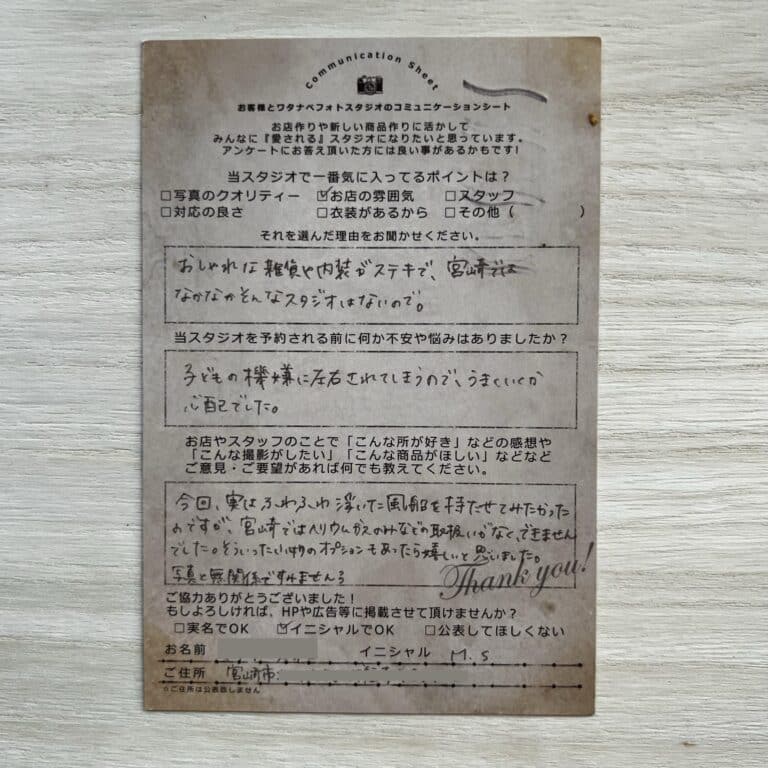 Communication Sheet
お客様とワタナベフォトスタジオのコミュニケーションシート
お店作りや新しい商品作りに活かして
みんなに『愛される』スタジオになりたいと思っています。
アンケートにお答え頂いた方には良い事があるかもです!
当スタジオで一番気に入ってるポイントは?
□写真のクオリティー ☑お店の雰囲気 □スタッフ
□対応の良さ □衣装があるから □その他( )
それを選んだ理由をお聞かせください。
おしゃれな雑貨や内装がステキで、宮崎では
なかなかそんなスタジオはないので。
当スタジオを予約される前に何か不安や悩みはありましたか?
子どもの機嫌に左右されてしまうので、うまくいくか
心配でした。
お店やスタッフのことで「こんな所が好き」などの感想や
「こんな撮影がしたい」「こんな商品がほしい」などなど
ご意見・ご要望があれば何でも教えてください。
今回、実はふわふわ浮いた風船を持たせてみたかった
のですが、宮崎ではヘリウムガスのみなどの取扱いがなく、できません
でした。そういったい物のオプションもあったら嬉しいと思いました。
写真と無関係ですみません
Thank you!
ご協力ありがとうございました!
もしよろしければ、HPや広告等に掲載させて頂けませんか?
□実名でOK ☑イニシャルでOK □公表してほしくない
お名前 イニシャル M.S
ご住所 宮崎市
※ご住所は公表致しません